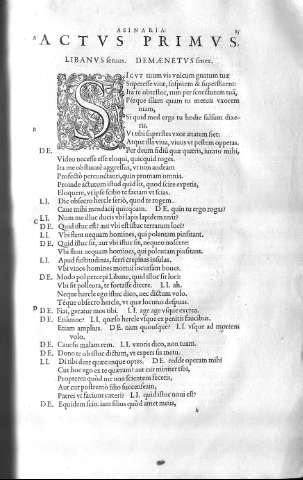 ASINARIA. 25
A ACTVS PRIMVS.
LIBANVS seruus. DEMÆNETVS senex.
SICVT tuum vis vnicum gnatum tuæ
Superesse vitæ, sospitem & superstitem:
Ita te obtestor, per senectutem
Perque illam quam tu metuis vxorem
Si quid med erga tu hodie falsum dixe-
ris.
B Vt tibi superstes vxor ætatem siet:
Atque illa viua, viuus vt pestem oppetas.
DE. Per deum fidiū quæ quæris, iurato mihi
Video necesse esse eloqui, quicquid roges.
Ita me obstinate aggressus, vt non audeam
Profecto percunctanti, quin promam omnia.
Proinde actutum istud quid sit, quod scire expetis,
Eloquere, vt ipse scibo te faciam vt scias.
LI. Dic obsecro hercle serio, quod te rogem.
Caue mihi mendaci quicquam. DE. quin tu ergo rogas?
C LI. Num me illuc ducis vbi lapis lapidem terit?
DE. Quid istuc est? aut vbi est istuc terrarum loci?
LI. Vbi flent nequam homines, qui polentam pinsitant.
DE. Quid istuc sit, aut vbi istuc, nequeo noscere:
Vbi flent nequam homines, qui polentam pinsitant.
LI. Apud fustitudinas, ferri crepinas insulas,
Vbi viuos homines mortui incursant boues.
DE. Modo pol percepi Libane, quid istuc sit loci:
Vbi fit polleuta, te fortasse dicere. LI. ah.
Neque hercle ego istuc dico, nec dictum volo.
Téque obsecro hercle, vt quæ locutus despuas.
D DE. Fiat, geratur mos tibi. LI. age age vsque excrea.
DE. Etiamne? LI. quæso hercle vsque ex penitis faucibus.
Etiam amplius. DE. nam quousque? LI. vsque ad mortem
volo.
DE. Caue sis malam rem. LI. vxoris dico, non tuam.
DE. Dono te ob istuc dictum, vt expers sis metu.
LI. Di tibi dent quæcunque optes. DE. redde operam mihi
Cur hoc ego ex te quæram? aut cur miniter tibi,
Propterea quòd me non scientem feceris,
Aut cur postremò filio succenseam,
Patres vt faciunt cæteri? LI. quid istuc noui est?
DE. Equidem scio iam filius quòd amet meus,
b